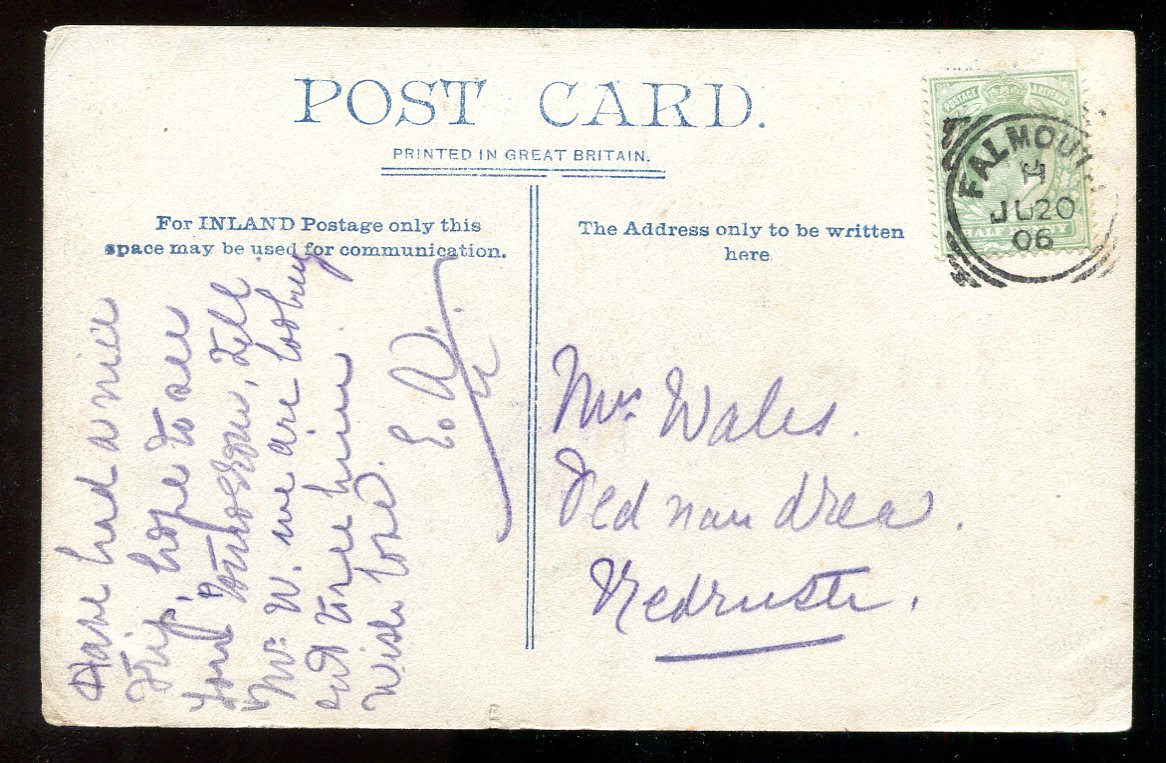 POST CARD.
PRINTED IN GREAT BRITAIN.
For INLAND Postage only this
space may be used for communication.
The Address only to be written
here
POSTAGE REVENUE
HALF PENNY
FALMOUTH
H
JU 20
06
Have had a nice
Trip, hope to see
you tomorrow, Tell
Mr. W. we are looking
out for him.
With love.
E. A.
Mrs Wales.
Pednandrea.
Redruth.